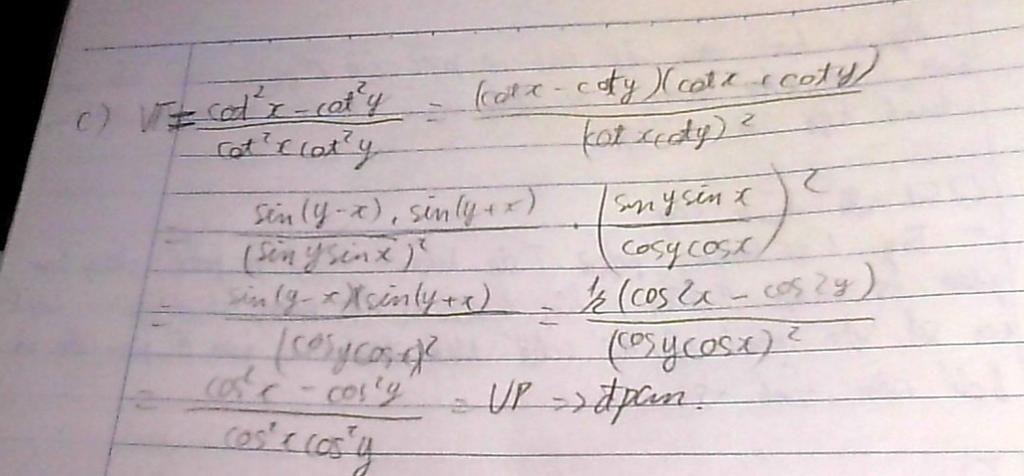 c) VT = \frac{cot²x - cot²y}{cot²x cot²y} = \frac{(cotx - coty)(cotx + coty)}{(cotx coty)²}
= \frac{sin(y-x) . sin(y+x)}{(sinysinx)²} . (\frac{sinysinx}{cosycosx})²
= \frac{sin(y-x)(sin(y+x)}{(cosycosx)²} = \frac{1/2(cos2x - cos2y)}{(cosycosx)²}
= \frac{cos²x - cos²y}{cos²x cos²y} = VP => đpcm.